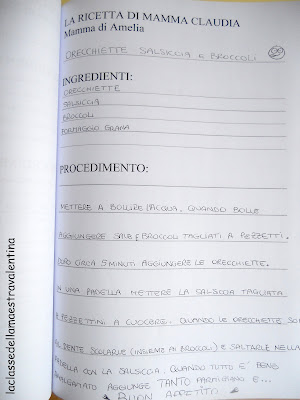 LA RICETTA DI MAMMA CLAUDIA
Mamma di Amelia
ORECCHIETTE SALSICCIA e BROCCOLI
INGREDIENTI:
ORECCHIETTE
SALSICCIA
BROCCOLI
FORMAGGIO GRANA
PROCEDIMENTO:
METTERE A BOLLIRE L'ACQUA. QUANDO BOLLE
AGGIUNGERE SALE E BROCCOLI TAGLIATI A PEZZETTI.
DOPO CIRCA 5 MINUTI AGGIUNGERE LE ORECCHIETTE.
IN UNA PADELLA METTERE LA SALSICCIA TAGLIATA
A PEZZETTINI A CUOCERE. QUANDO LE ORECCHIETTE SO
AL DENTE SCOLARLE (INSIEME AI BROCCOLI) E SALTARLE NELLA
PADELLA CON LA SALSICCIA. QUANDO TUTTO E' BENE
AMALGAMATO AGGIUNGE TANTO PARMIGIANO E...
BUON APPETITO
laclassedellamaestravalentina